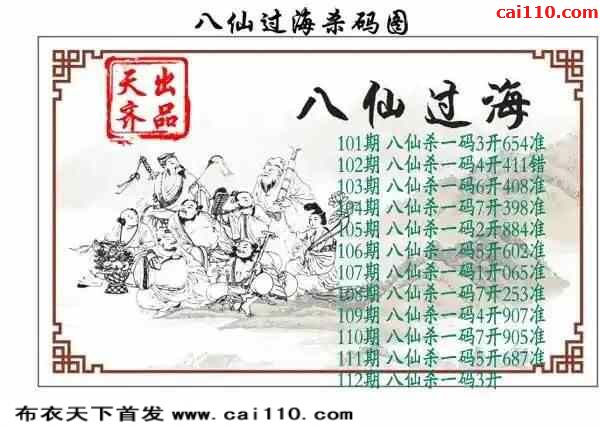 八仙过海杀码图
cai110.com
天齐出品
八仙过海
101期 八仙杀一码3开654准
102期 八仙杀一码4开411错
103期 八仙杀一码6开408准
104期 八仙杀一码7开398准
105期 八仙杀一码2开884准
106期 八仙杀一码8开602准
107期 八仙杀一码1开065准
108期 八仙杀一码7开253准
109期 八仙杀一码4开907准
110期 八仙杀一码7开905准
111期 八仙杀一码5开687准
112期 八仙杀一码3开
布衣天下首发 www.cai110.com